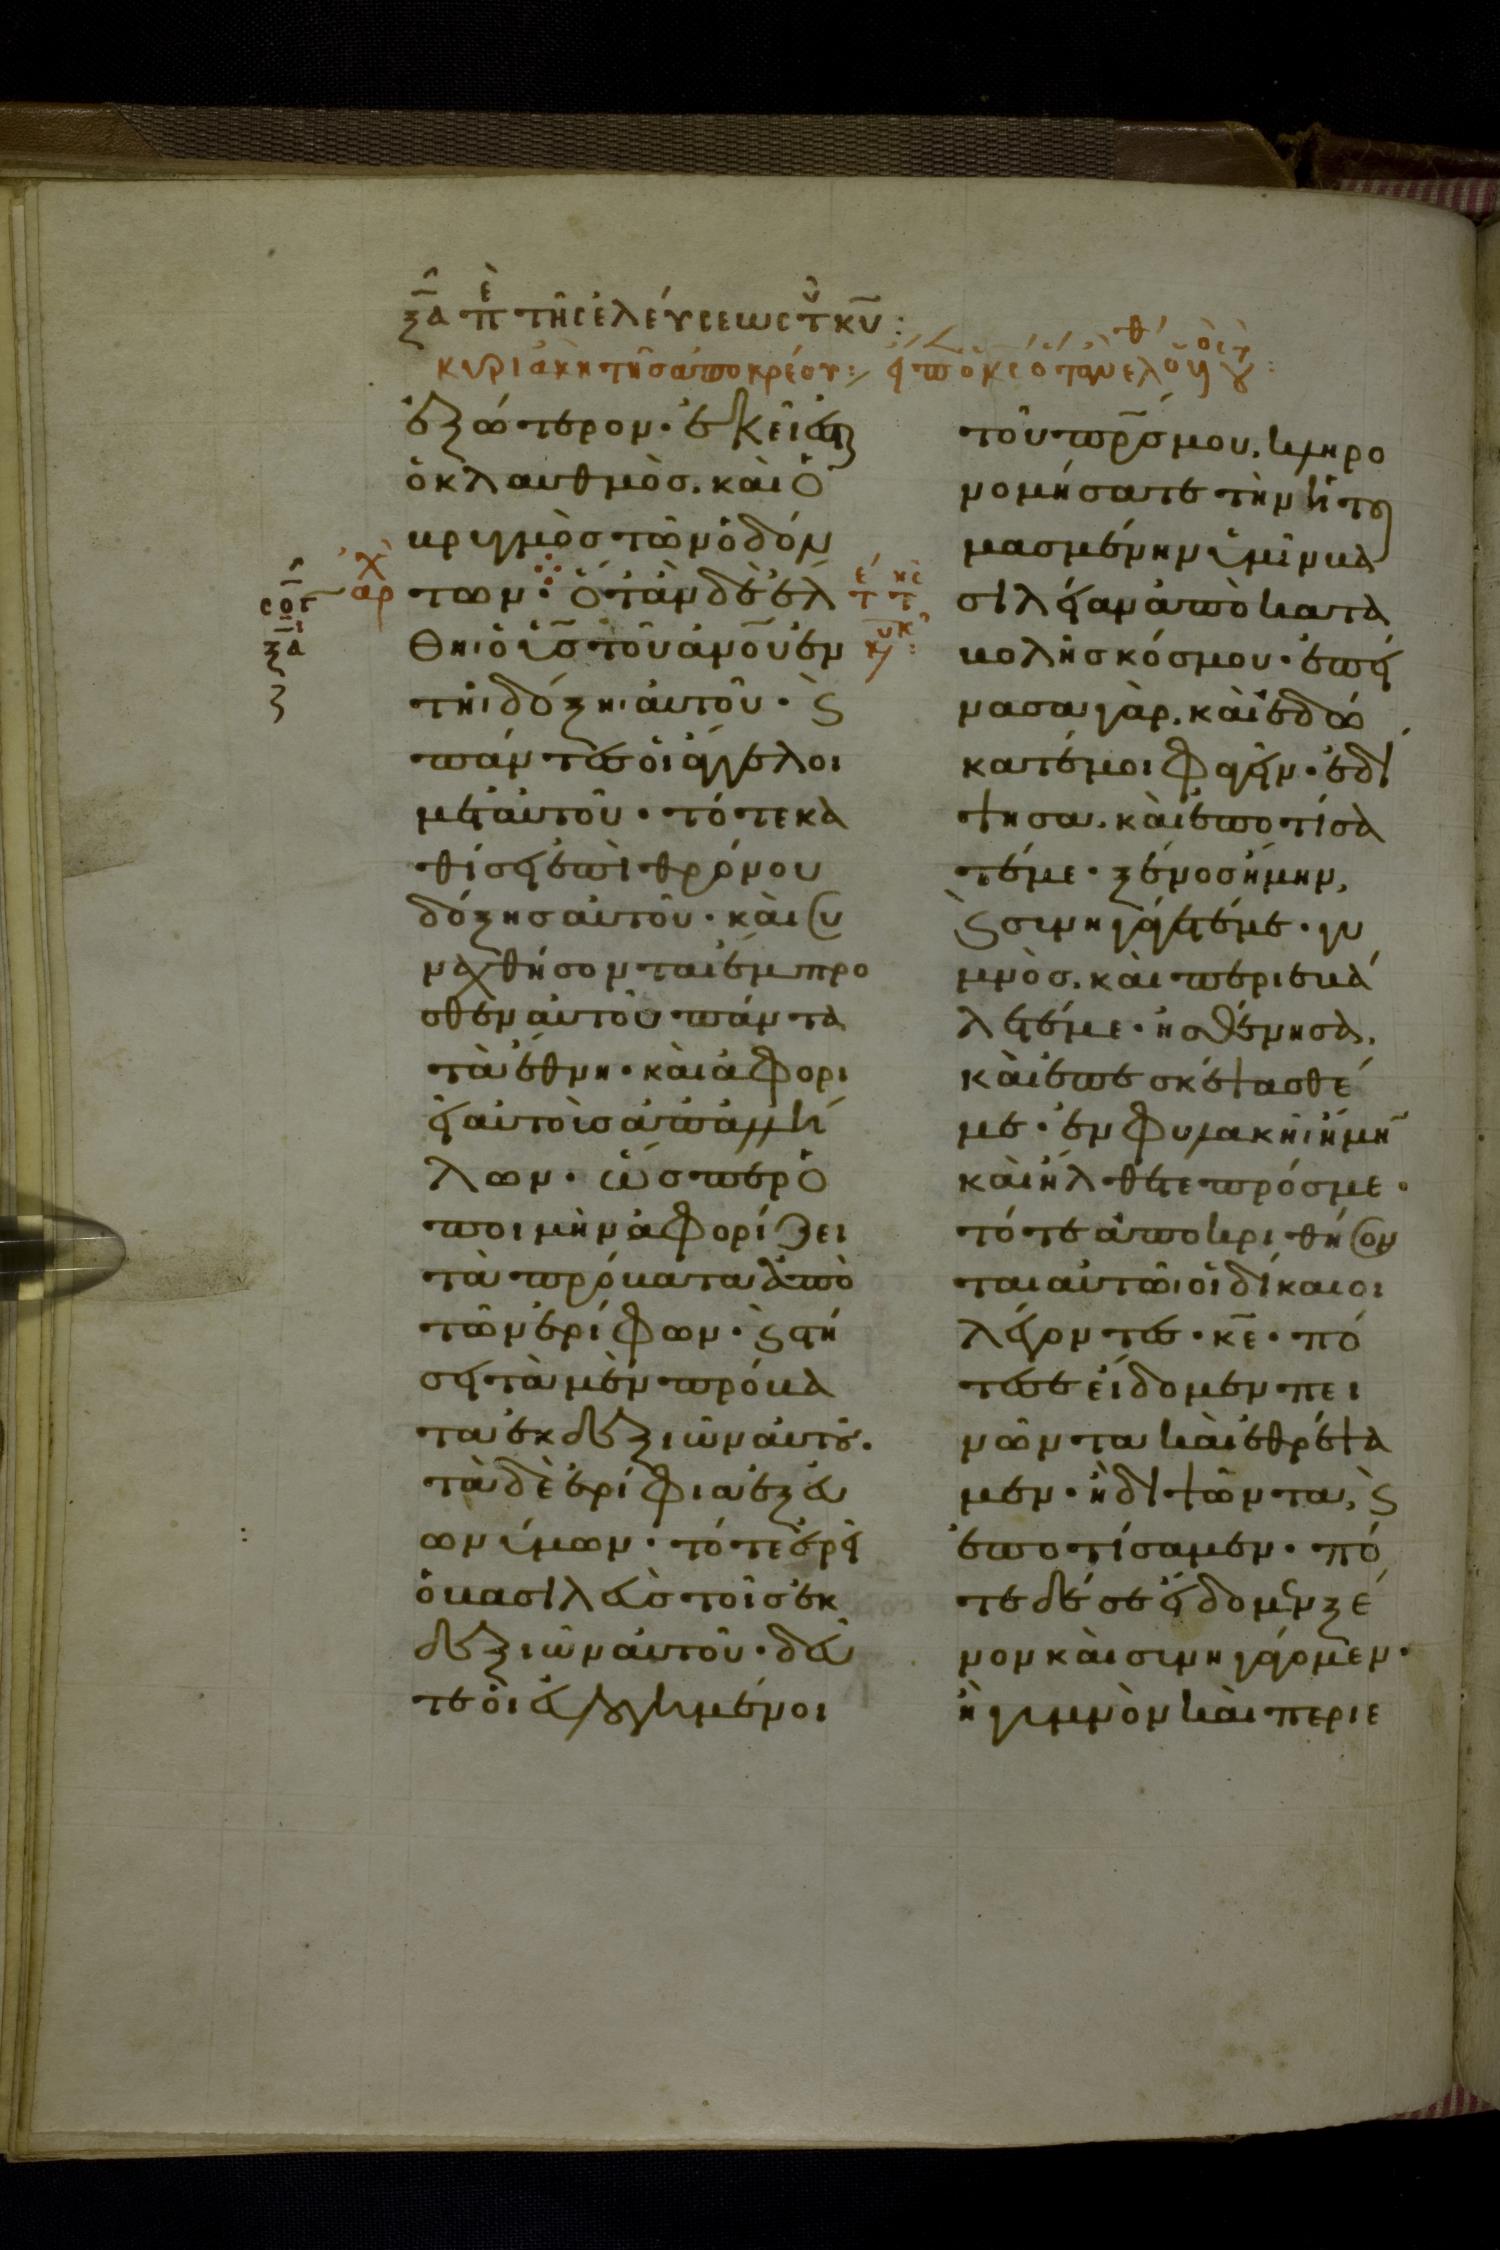 ξα πε τῆς ἐλεύσεως τ κυ :
κυριακη τῆς ἀπόκρεου :
ἐξώτερον· ἐκεῖ ἔσται
ὁ κλαυθμὸσ. καὶ ὁ
βρυγμὸσ τῶν ὀδόν
των· ὅταν δὲ ἔλ
θηι ὁ υϊσ τοῦ ανου ἐν
τῆι δόξηι αὐτοῦ· ϗ
πάντεσ οἱ ἄγγελοι
μετ αὐτοῦ· τότε κα
θίσει ἐπὶ θρόνου
δόξησ αὐτοῦ· καὶ συ
ναχθήσονται ἔμπρο
σθεν αὐτοῦ πάντα
τὰ ἔθνη· καὶ ἀφορι
εῖ αὐτοὺσ ἀπ ἀλλή
λων· ὥσπερ ὁ
ποιμὴν ἀφορίζει
τὰ πρόβατα ἀπὸ
τῶν ἐρίφων· ϗ στή
σει τὰ μὲν πρόβα
τα ἐκ δεξιῶν αὐτοῦ.
τὰ δὲ ἐρίφια ἐξ εὐ
ωνύμων· τότε ἐρεῖ
ὁ βασιλεὺσ τοῖσ ἐκ
δεξιῶν αὐτοῦ· δεῦ
τε οἱ εὐλογημένοι
τοῦ πρσ μου. κληρο
νομήσατε τὴν ἡτοι
μασμένην ὑμῖν βα
σιλείαν ἀπὸ κατα
βολῆσ κόσμου· ἐπεί
νασα γὰρ. καὶ ἐδώ
κατέ μοι φαγεῖν· ἐδί
ψησα. καὶ ἐποτίσα
τέ με· ξένοσ ἤμην,
ϗ συνηγάγετέ με· γυ
μνὸσ. καὶ περιεβά
λετέ με· ἠσθένησα.
καὶ ἐπεσκέψασθέ
με· ἐν φυλακῆι ἤμην
καὶ ἤλθετε πρόσ με·
τότε ἀποκριθήσον
ται αὐτῶι οἱ δίκαιοι
λέγοντεσ· κε· πό
τε σε εἴδομεν πει
νῶντα καὶ ἐθρέψα
μεν· ἢ διψῶντα, ϗ
ἐποτίσαμεν· πό
τε δέ σε εἴδομεν ξέ
νον καὶ συνηγάγομεν·
ἢ γυμνὸν καὶ περιε